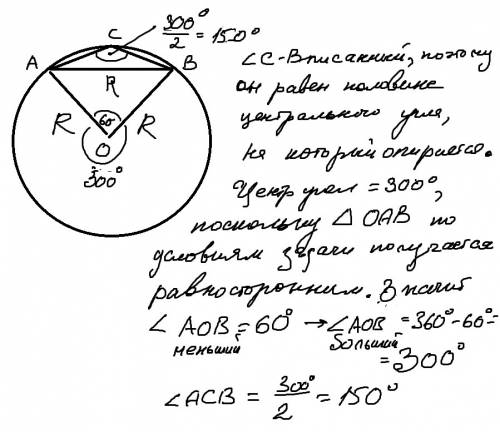 300° / 2 = 150°
C
A
B
R
R
60°
R
O
300°
∠C-вписанный, поэтому
он равен половине
центрального угла,
на который опирается.
Центр угол = 300°,
поскольку △ OAB по
условиям задачи получается
равносторонним. Значит
∠ AOB = 60° → ∠AOB = 360°-60° =
меньший больший
= 300°
∠ACB = 300° / 2 = 150°